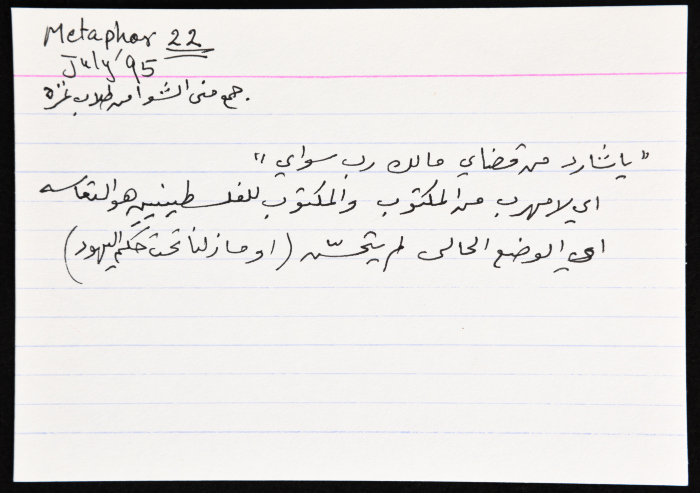 Metaphor 22
July '95
جمع منى الشوا من طلاب غزة.
"يا شارد من قضاي مالك رب سواي"
اي لا مهرب من المكتوب والمكتوب للفلسطينيين هو التعاسه
اي الوضع الحالى لم يتحسّن (او مازلنا تحت حكم اليهود)